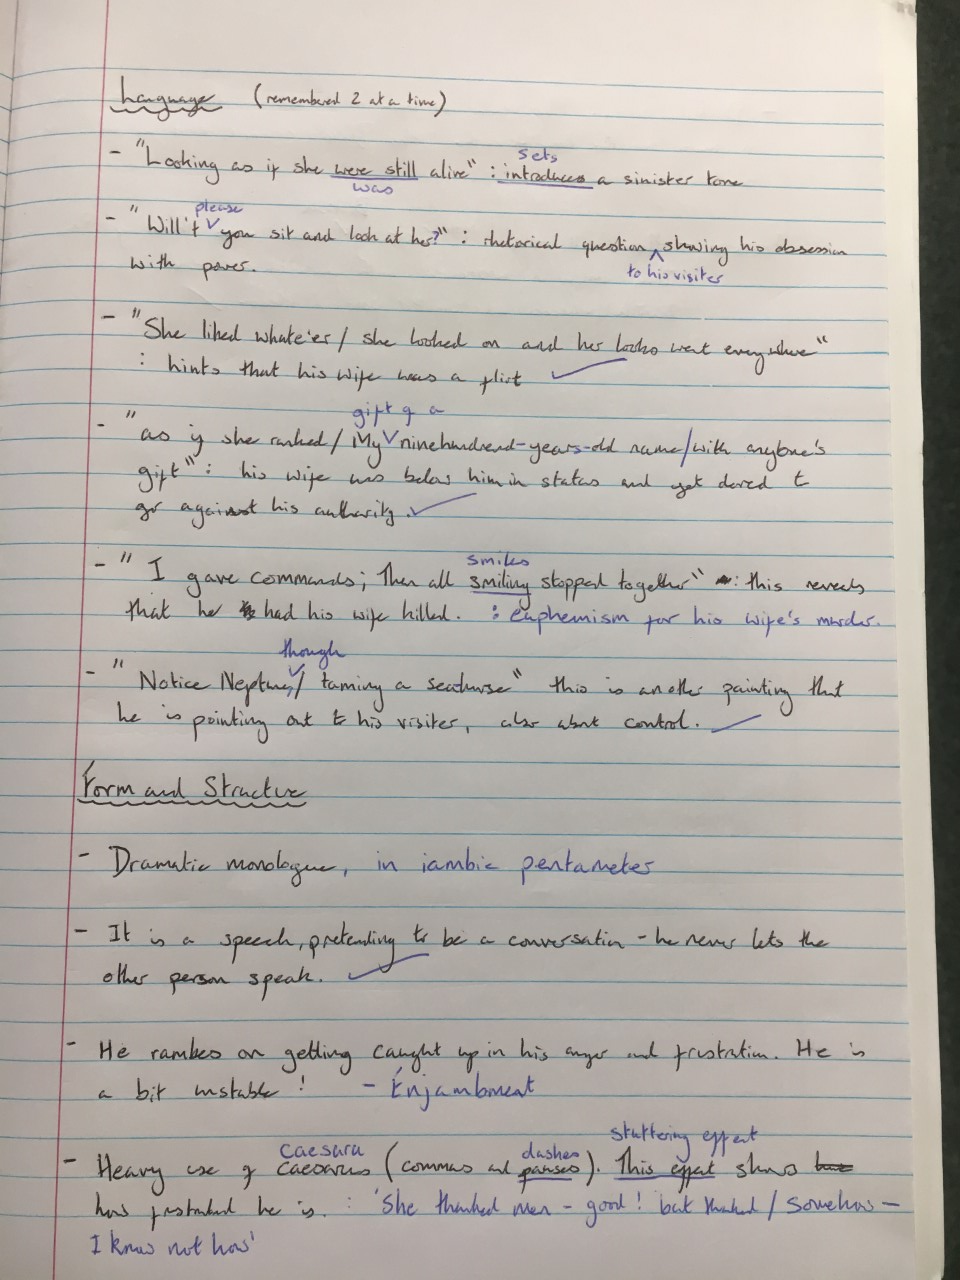 Language (remembered 2 at a time)
sets
- "Looking as if she were still alive" : introduces a sinister tone
was
please
- "Will't you sit and look at her?" : rhetorical question showing his obsession
with power. to his visiter
- "She liked whate'er / she looked on and her looks went everywhere"
: hints that his wife was a flirt
gift of a
- "as if she ranked / My ninehundred-years-old name / with anybone's
gift" : his wife was below him in status and yet dared to
go against his authority.
smiles
- "I gave commands; Then all smiling stopped together" : this reveals
that he had his wife killed. : euphemism for his wife's murder.
though
- "Notice Neptune, / taming a seahorse" this is another painting that
he is pointing out to his visiter, also about control.
Form and Structure
- Dramatic monologue, in iambic pentameter
- It is a speech, pretending to be a conversation - he never lets the
other person speak.
- He rambes on getting caught up in his anger and frustration. He is
a bit unstable! - Enjambment
caesura dashes stuttering effect
- Heavy use of caesarus (commas and pauses). This effect shows
how frustrated he is. : 'She thanked men - good! but thanked / Somehow -
I know not how'